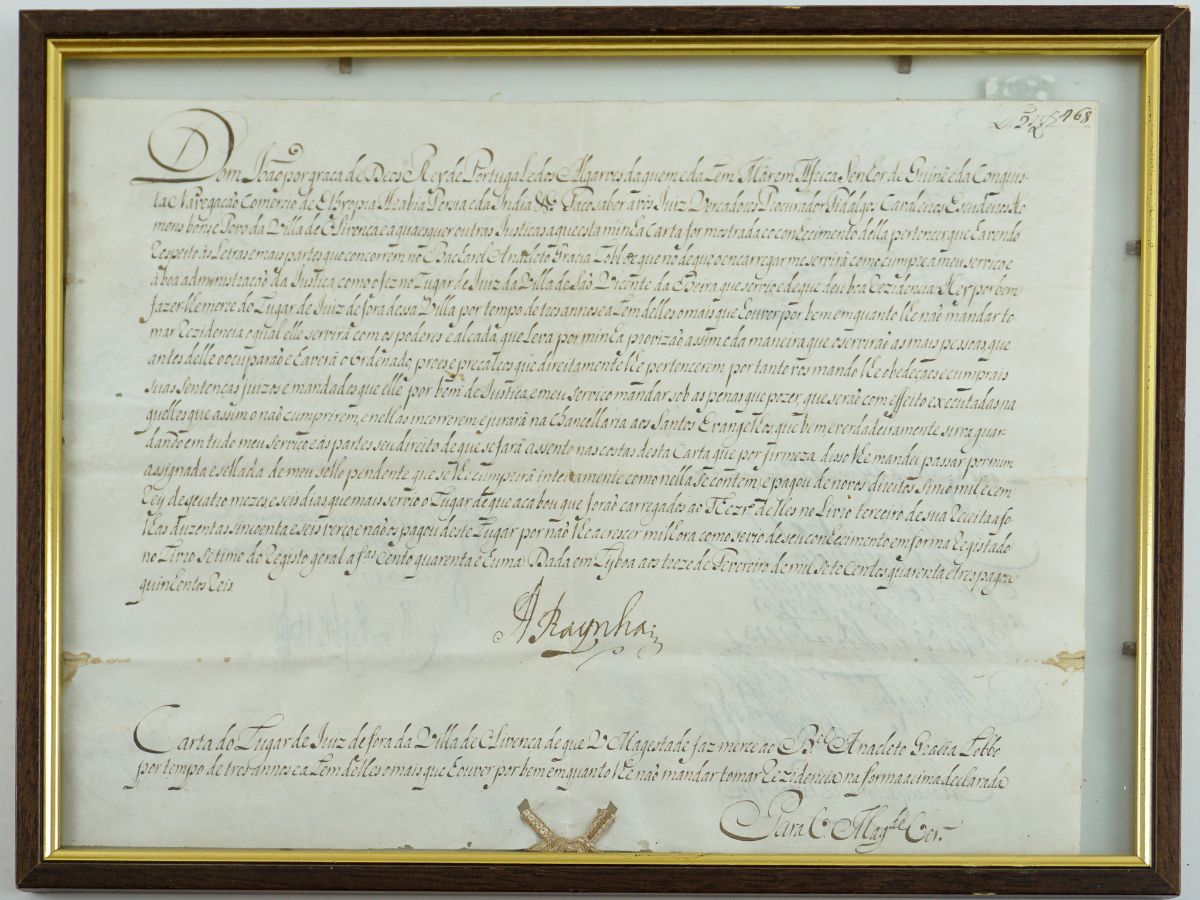 468
Dom João por graça de Deos Rey de Portugal e dos Algarves daquem e dalem Mâr em Africa Senhor de Guinê e da Conquis-
ta Navegação Comercio de Ethyopia Arabia Persia e da India &c. Faço saber a vós Juiz Vereadores Procurador Fidalgos Cavaleiros Escudeiros Ho
mens bons e Povo da Villa de Olivença e a quaesquer outras Justiças a que esta minha Carta for mostrada e o conhecimento della pertencer que havendo
respeito ás Letras e mais partes que concorrem no Bacharel Anacleto Gracia Lobbo e que no de que o encarregar me servirá como cumpre a meu serviço e
â boa administração da Justiça como o fez no Lugar de Juiz da Villa de São Vicente da Beira que servio e de que deu boa Rezidencia Hey por bem
fazerlhe merce do Lugar de Juiz de fora dessa Villa por tempo de tres annos e alem delles o mais que eu ouver por bem em quanto lhe não mandar to
mar Rezidencia o qual elle servirá com os poderes e alçada, que leva por minha provizão assim e da maneira que o servirão as mais pessoas que
antes delle o occuparão e haverá o ordenado, proes e precalços que direitamente lhe pertencerem, por tanto vos mando lhe obedeçaes e cumprais
suas sentenças, juizos e mandados que elle por bem de Justiça, e meu serviço mandar sob as penas que pozer que serão com effeito executadas na
quelles que assim o não cumprirem, e nellas incorrerem, e jurará na Chancellaria aos Santos Evangelhos, que bem, e verdadeiramente sirva, guar-
dando em tudo meu Serviço, e ás partes seu direito de que se fará assento nas costas desta Carta que por firmeza disso lhe mandei passar por mim
assignada e sellada de meu sello pendente que se lhe cumprirá inteiramente como nella se contem, e pagou de novos direitos sinco mil e cem
rey de quatro mezes, e seis dias que mais servio o Lugar de que acabou que forão carregados ao Thezrº. delles no Livro terceiro de sua Receita a fo
lhas duzentas sincoenta e seis verço, e não os pagou deste Lugar por não lhe acrescer milhora como se vio de seu conhecimento em forma Registado
no Livro Setimo do Registo geral a fªs Cento quarenta e huma Dada em Lisboa aos treze de Fevereiro de mil Sete centos quarenta e tres pagou
quinhentos Reis.
A Raynha
Carta do Lugar de Juiz de fora da Villa de Olivença de que V. Magestade faz merce ao Bel. Anacleto Gracia Lobbo
por tempo de tres annos e alem delles o mais que eu ouver por bem enquanto lhe não mandar tomar Rezidencia na forma acima declarada
Para V. Magde. Ver.